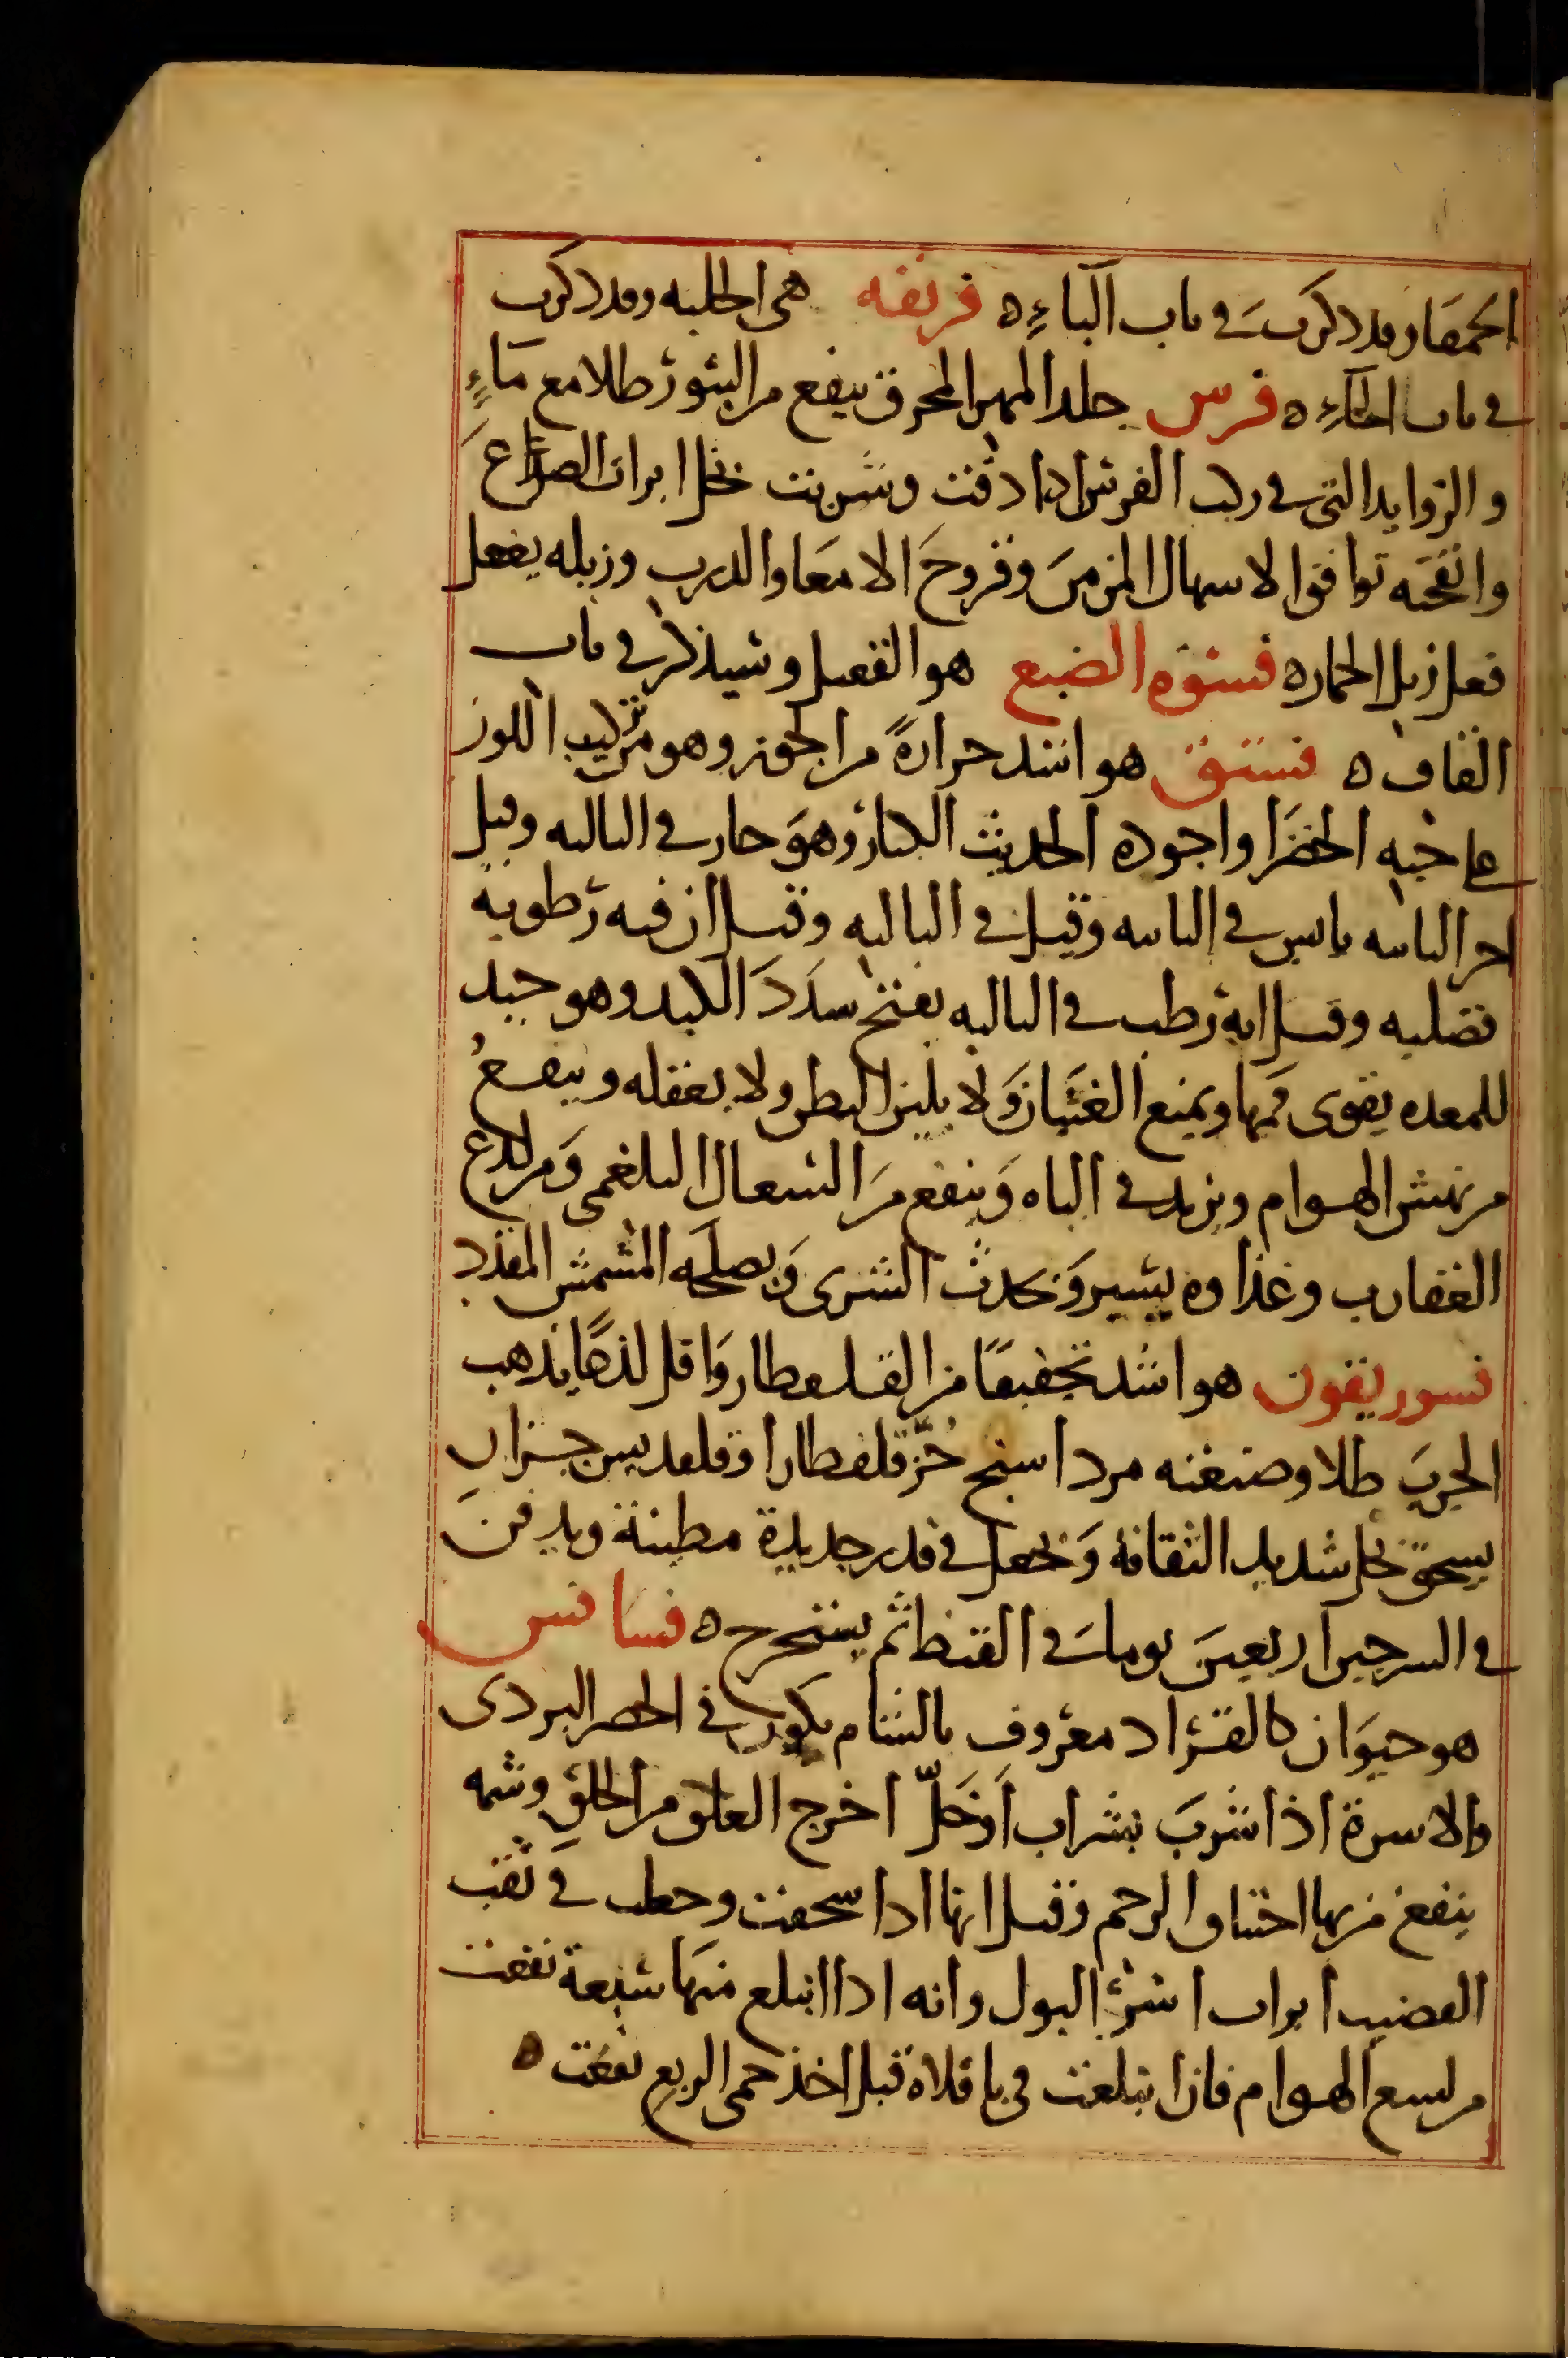 الحمقا وقد ذكرت في باب الباء ه فريقه هي الحلبه وقد ذكرت
في باب الحاء ه فرس جلد المهر المحرق ينفع من البثور طلا مع ماء
والزوايد التي في ركب الفرس اذا دقت وشربت بخل ابرات الصراع
وانفحته توافق الاسهال المزمن وقروح الامعا والذرب وزبله يفعل
فعل زبل الحمار ه فسوة الضبع هو الفقعل وسيذكر في باب
القاف ه فستق هو اشد حرارة من الجوز وهو مركب اللوز
على حبه الخضرا واجوده الحديث الكبار وهو حار في الثالثه وقيل
اخر الثانيه يابس في الثانيه وقيل في الثالثه وقيل ان فيه رطوبة
فضليه وقيل انه رطب في الثالثه يفتح سدد الكبد وهو جيد
للمعده يقوى فمها ويمنع الغثيان ولا يلين البطن ولا يعقله وينفع
من نهش الهوام ويزيد في الباه وينفع من السعال البلغمي ومن لدغ
العقارب وغذاوه يسير ويحدث الشرى ويصلحه المشمش المقدد
فسوريقون هو اشد تجفيفا من القلقطار واقل لذعا يذهب
الجرب طلا وصنعته مرداسنج جز قلقطارا وقلقديس جزان
يسحق بخل شديد الثقافة ويجعل في قدر جديدة مطينة ويدفن
في السرجين اربعين يوما في القيظ ثم يستخرج ه فسافس
هو حيوان كالقراد معروف بالشام يكون في الحصر البردي
والاسرة اذا شرب بشراب او خل اخرج العلق من الحلق وشمه
ينفع من بها اختناق الرحم وقيل انها اذا سحقت وجعلت في ثقب
القضيب ابرات اسر البول وانه اذا ابتلع منها سبعة نفعت
من لسع الهوام فان ابتلعت في باقلاة قبل اخذ حمى الربع نفعت ه